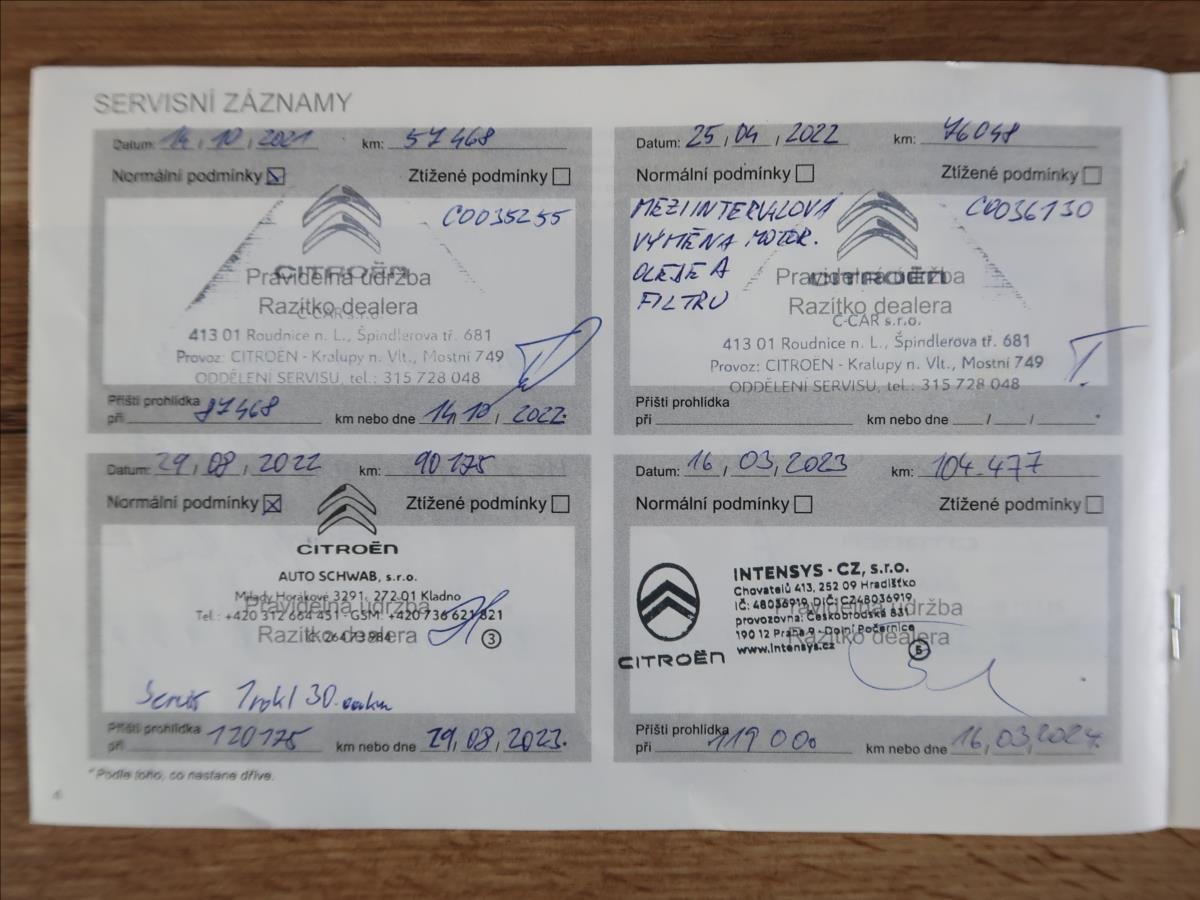 SERVISNÍ ZÁZNAMY
Datum: 14, 10, 2021 km: 57 468
Normální podmínky Ztížené podmínky
C0035255
CITROËN
Pravidelná údržba
Razítko dealera
C-CAR s.r.o.
413 01 Roudnice n. L., Špindlerova tř. 681
Provoz: CITROËN - Kralupy n. Vlt., Mostní 749
ODDĚLENÍ SERVISU, tel.: 315 728 048
Příští prohlídka
při 87468 km nebo dne 14, 10 / 2022.
Datum: 25 / 04 / 2022 km: 76048
Normální podmínky Ztížené podmínky
MEZIINTERVALOVÁ C0036130
VÝMĚNA MOTOR.
OLEJE A
FILTRU
CITROËN
Pravidelná údržba
Razítko dealera
C-CAR s.r.o.
413 01 Roudnice n. L., Špindlerova tř. 681
Provoz: CITROËN - Kralupy n. Vlt., Mostní 749
ODDĚLENÍ SERVISU, tel.: 315 728 048
Příští prohlídka
při km nebo dne / /
Datum: 29, 08, 2022 km: 90175
Normální podmínky Ztížené podmínky
CITROËN
AUTO SCHWAB, s.r.o.
Milady Horákové 3291, 272 01 Kladno
Pravidelná údržba
Tel.: +420 312 664 451 · GSM: +420 736 621 821
Razítko dealera
3
Servis 1 rok / 30.
Příští prohlídka
při 120175 km nebo dne 29, 08, 2023.
Datum: 16 / 03, 2023 km: 104.477
Normální podmínky Ztížené podmínky
INTENSYS - CZ, s.r.o.
Chovatelů 413, 252 09 Hradištko
IČ: 48036919, DIČ: CZ48036919
Pravidelná údržba
provozovna: Českobrodská 831
190 12 Praha 9 - Dolní Počernice
Razítko dealera
www.intensys.cz
CITROËN
5
Příští prohlídka
při 119 000 km nebo dne 16, 03, 2024.
* Podle toho, co nastane dříve.